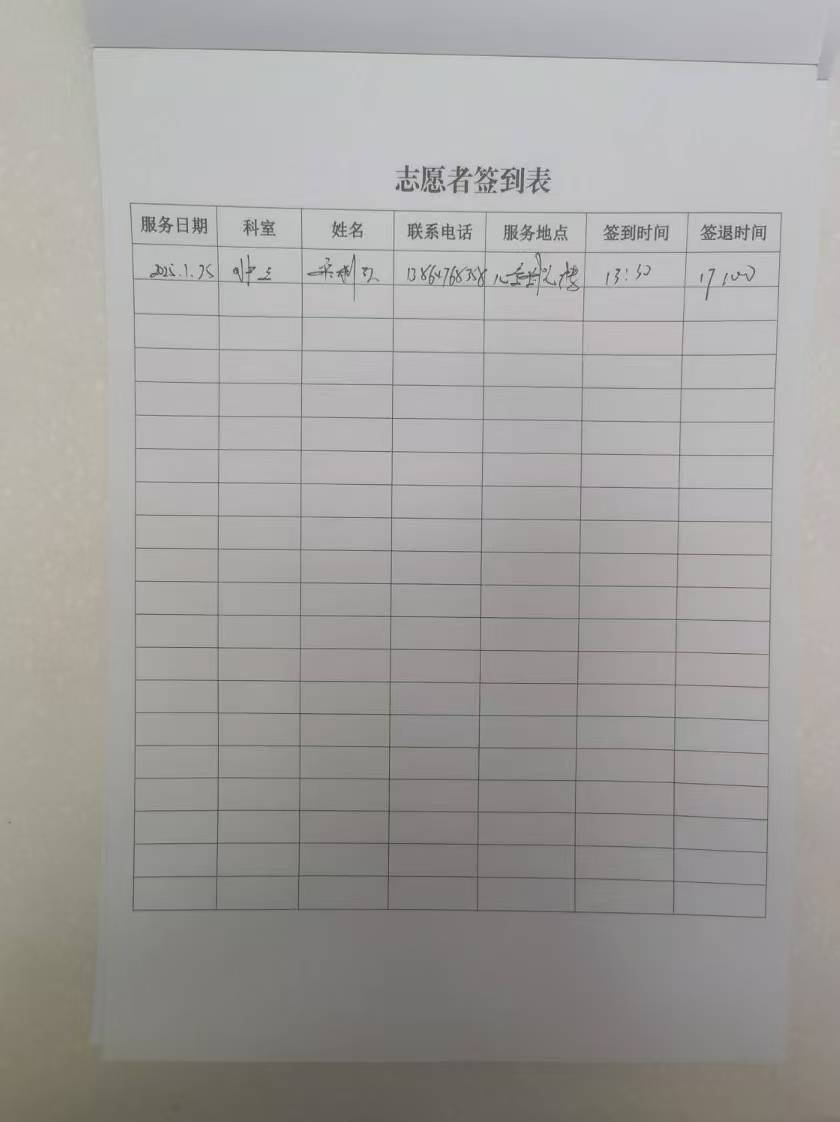 志愿者签到表
服务日期 科室 姓名 联系电话 服务地点 签到时间 签退时间
2025.1.25 13864768358 13:30 17:00